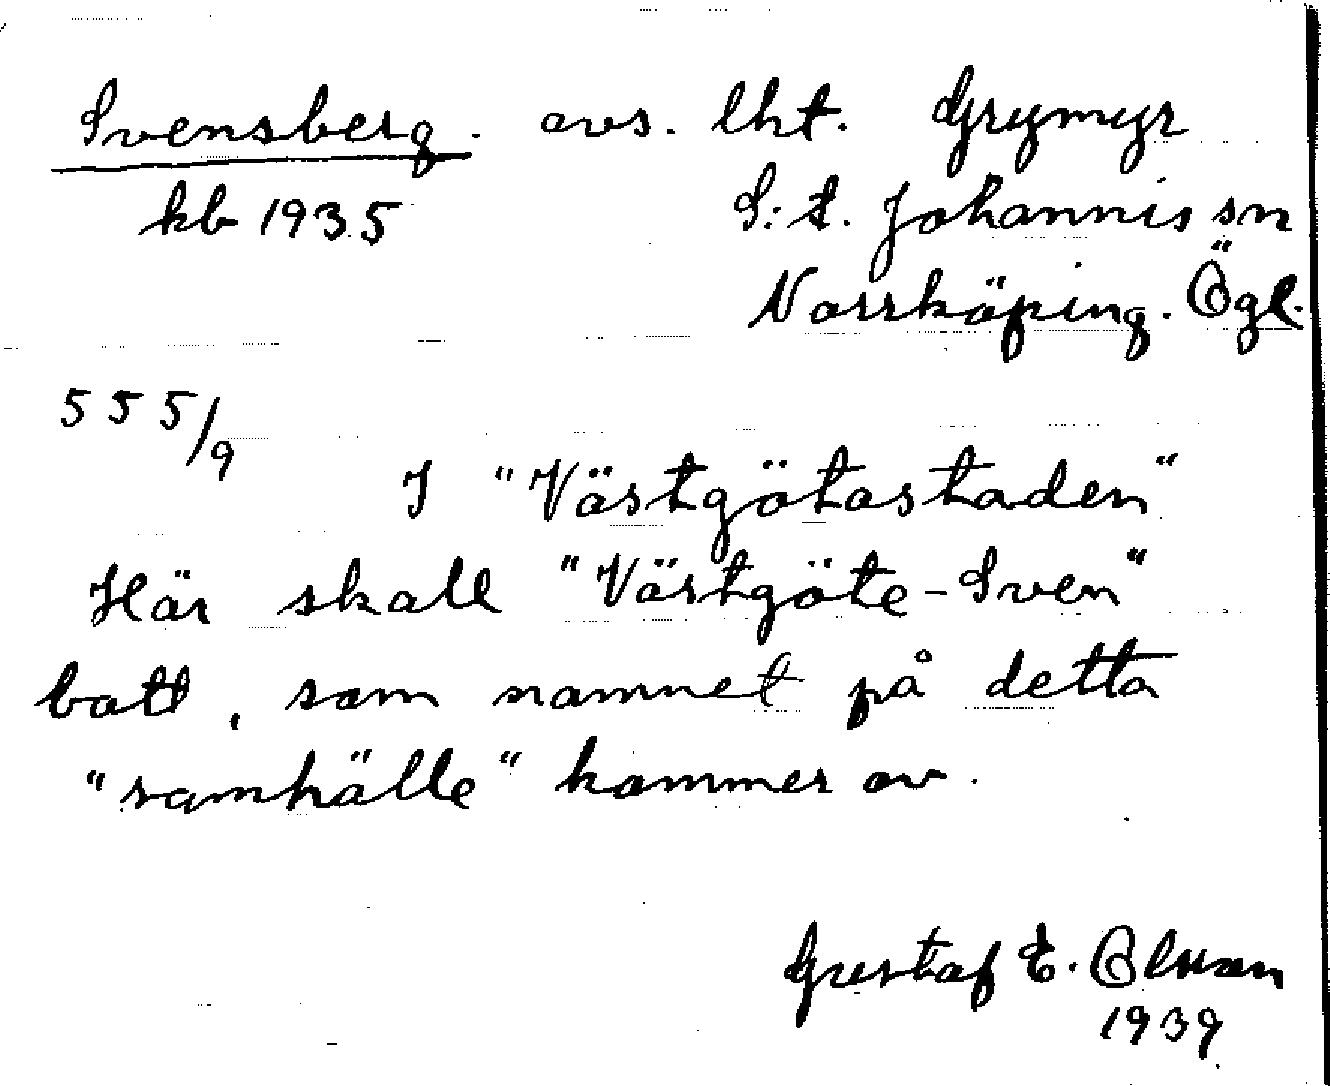 Svensberg. avs. lht. Grymyr
kb 1935 S:t. Johannis sn
Norrköping. Ögl.
555/9
I "Västgötastaden"
Här skall "Västgöte-Sven"
bott, som namnet på detta
"samhälle" kommer av.
Gustaf E. Olsson
1939